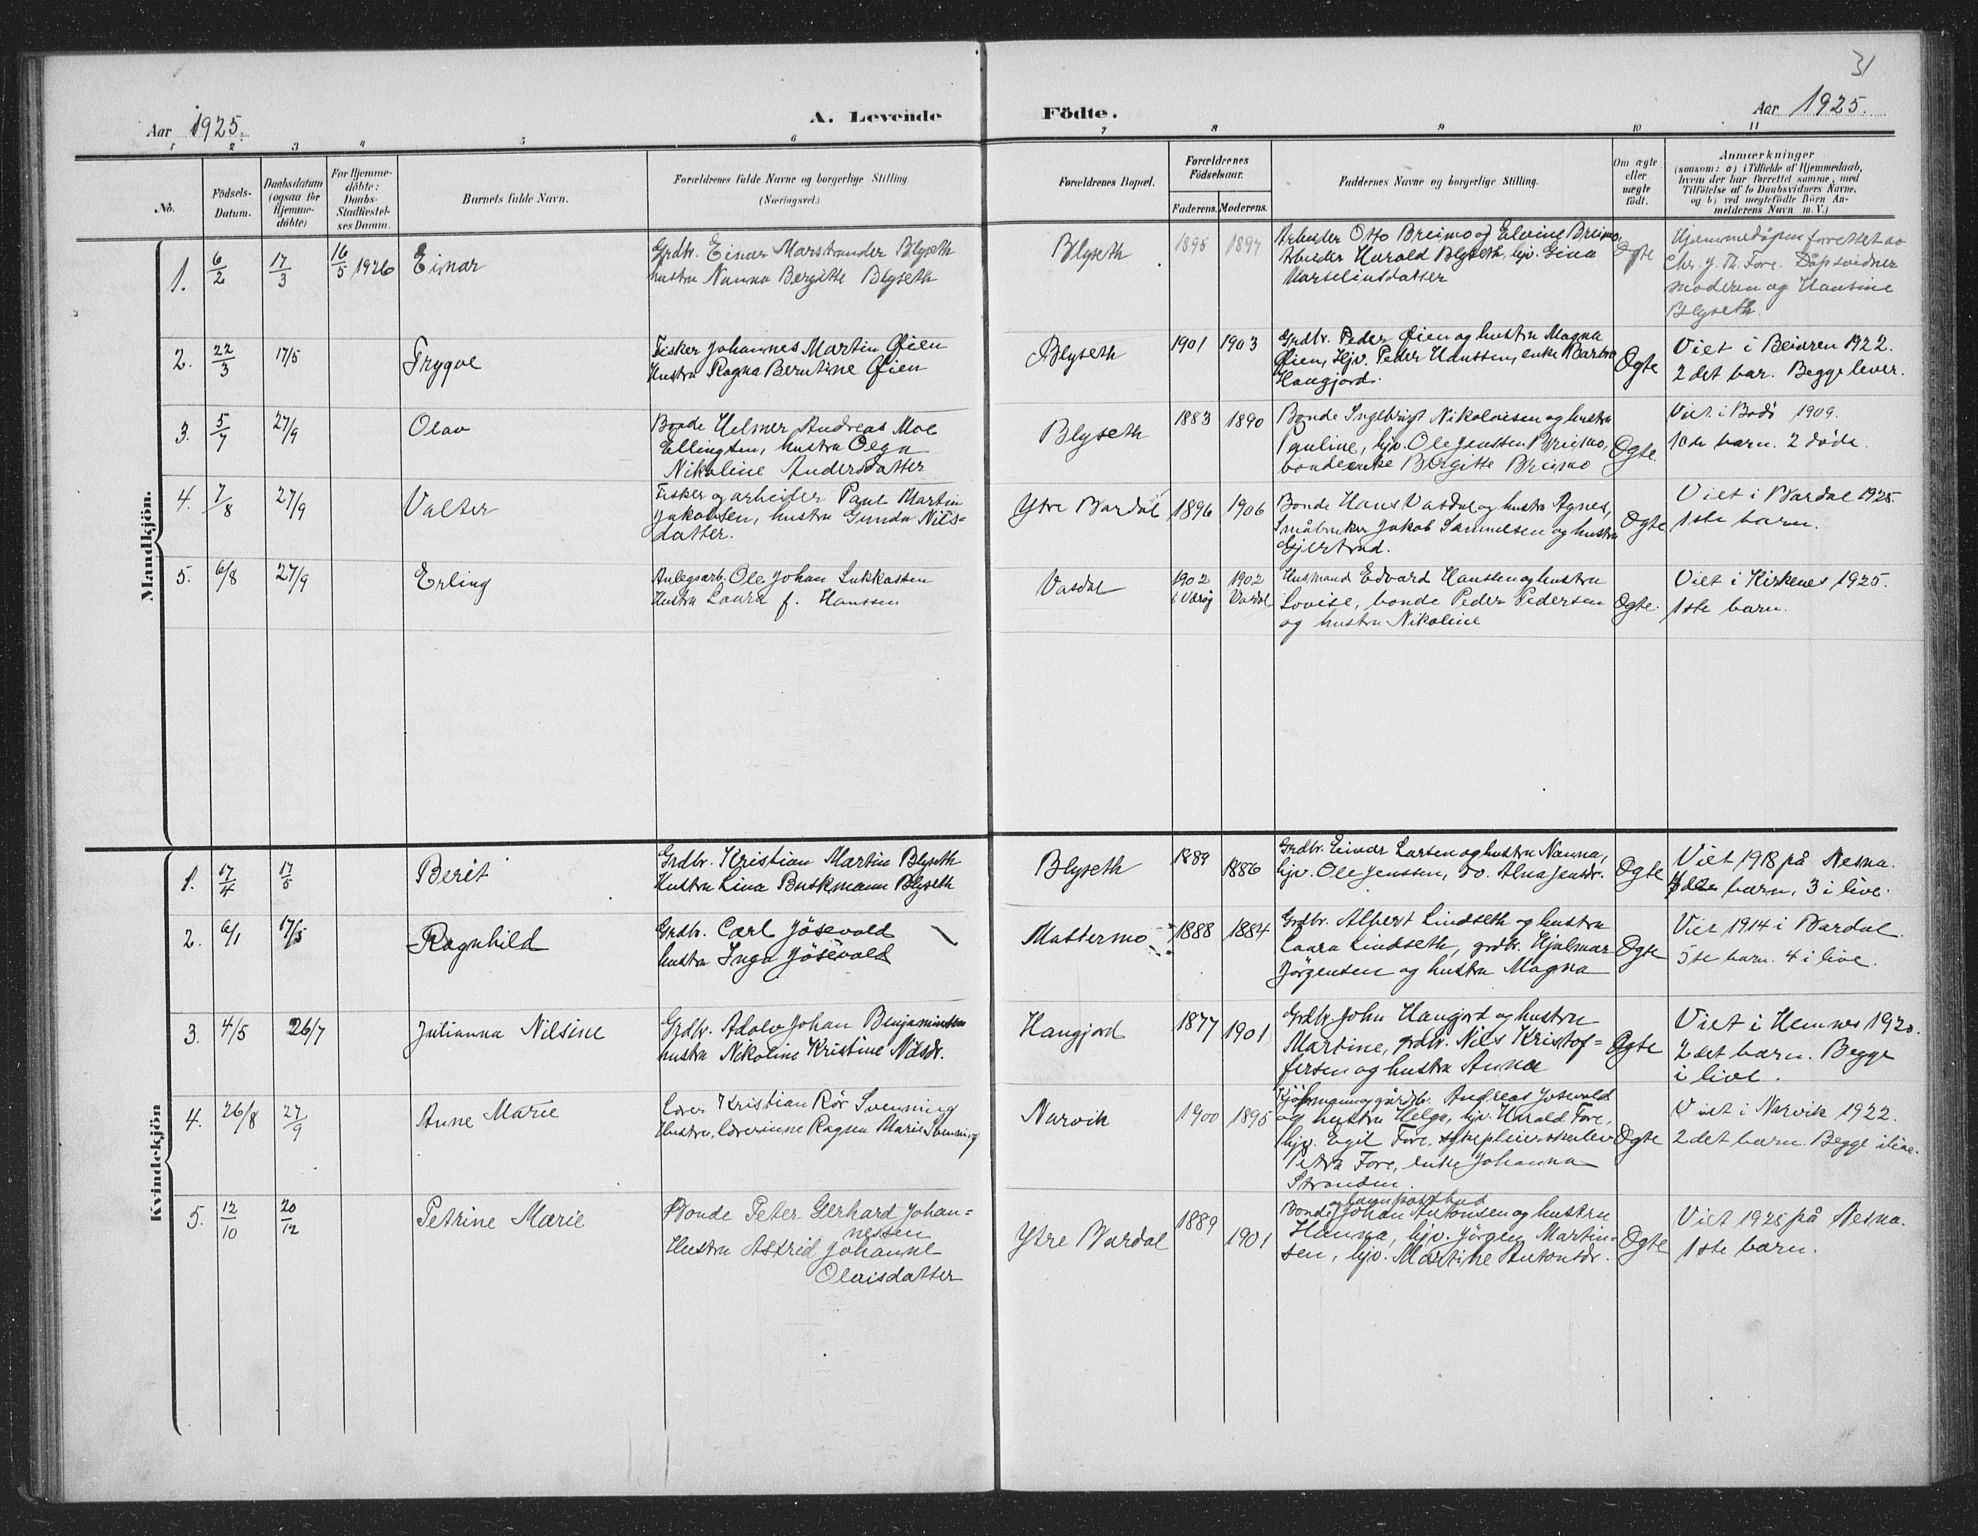 31
Aar 1925.
A. Levende Födte.
Aar 1925.
1 2 3 4 5 6 7 8 9 10 11
No.
Födsels-
Datum.
Daabsdatum
(ogsaa for
Hjemme-
döbte)
For Hjemme-
döbte:
Daabs-
Stadfæstel-
ses Datum.
Barnets fulde Navn.
Forældrenes fulde Navne og borgerlige Stilling.
(Næringsvei.)
Forældrenes Bopæl.
Forældrenes
Födselsaar.
Faderens. Moderens.
Faddernes Navne og borgerlige Stilling.
Om ægte
eller
uægte
födt.
Anmærkninger
(saasom: a) i Tilfælde af Hjemmedaab,
hvem der har forrettet samme, med
Tilföielse af to Daabsvidners Navne,
og b) ved uægtefödte Börn An-
melderens Navn m. V.)
Mandkjön.
1. 6/2 17/3 16/5 1926 Einar
Grdbr. Einar Marstrander Blyseth
hustru Nanna Bergitte Blyseth
Blyseth 1895 1897
Arbeider Otto Breimo og Elvine Breimo,
Arbeider Harald Blyseth, hjv. Gina
Marselinsdatter
Ægte
Hjemmedöpen forrettet av
Chr. J. Th. Fore. Dåpsvidner
moderen og Hansine
Blyseth.
2. 22/3 17/5 Trygve
Fisker Johannes Martin Øien
Hustru Ragna Berntine Øien
Blyseth 1901 1903
Grdbr. Peder Øien og hustru Magna
Øien, Hjv. Peder Hanssen, enke
Haugjord.
Ægte
Viet i Beiaren 1922.
2 det bar. Begge lever.
3. 5/7 27/9 Olav
Bonde Helmer Andreas Moe
Ellingsen, hustru Olga
Nikoline Andersdatter
Blyseth 1883 1890
Bonde Ingebrigt Nikolaisen og hustru
Pauline, hjv. Ole Jenssen Breimo,
bondeenke Birgitte Breimo
Ægte.
Viet i Bodö 1909.
10de barn. 2 döde.
4. 7/8 27/9 Valter
Fisker og arbeider Paul Martin
Jakobsen, hustru Gunda Nils-
datter.
Ytre Bardal 1896 1906
Bonde Hans Vasdal og hustru Agnes,
Småbruker Jakob Samuelsen og hustru
Gjertrud.
Ægte
Viet i Bardal 1925.
1ste barn.
5. 6/8 27/9 Erling
Anlegsarb. Ole Johan Lukkassen
Hustru Laura f. Hanssen
Vasdal 1902 i Værøy 1902 Bardal
Husmand Edvard Hanssen og hustru
Lovise, bonde Peder Pedersen
og hustru Nikoline
Ægte.
Viet i Kirkenes 1925.
1ste barn.
Kvindekjön
1. 17/4 17/5 Berit
Grdbr. Kristian Martin Blyseth
Hustru Lina Buskmann Blyseth
Blyseth 1889 1886
Grdbr. Einar Larsen og hustru Nanna,
hjv. Ole Jenssen, do. Alna Jensdr.
Ægte
Viet 1918 på Nesna.
barn, 3 i live.
2. 6/1 17/5 Ragnhild
Grdbr. Carl Jösevold
hustru Inga Jösevold
Mattermo 1888 1884
Grdbr. Albert Lindseth og hustru
Laura Lindseth, grdbr. Hjalmar
Jörgensen og hustru Magna
Ægte
Viet 1914 i Bardal.
5te barn. 4 i live.
3. 4/5 26/7 Julianna Nilsine
Grdbr. Adolv Johan Benjaminsen
hustru Nikoline Kristine Nilsdr.
Haugjord 1877 1901
Grdbr. John Haugjord og hustru
Martine, grdbr. Nils Kristof=
fersen og hustru Anna
Ægte
Viet i Hemnes 1920.
2det barn. Begge
i live.
4. 26/8 27/9 Anne Marie
Lærer Kristian Rör Svenning
Hustru, lærerinne Ragna Marie Svenning
Narvik 1900 1895
Kjöpmann og gårdb. Andreas Jösevold
og hustru Helga, hjv. Harald Fore,
hjv. Egil Fore, sykepleierskelev
Petra Fore, enke Johanna
Stranden.
Ægte
Viet i Narvik 1922.
2det barn. Begge i live.
5. 12/10 20/12 Petrine Marie
Bonde Peter Gerhard Johan=
nessen
Hustru Astrid Johanne
Olaisdatter
Ytre Bardal 1889 1901
Bonde Johan Antonsen og hustru
Hanna, hjv. Jörgen Martin-
sen, hjv. Martine Antonsdr.
Ægte
Viet 1925 på Nesna.
1ste barn.